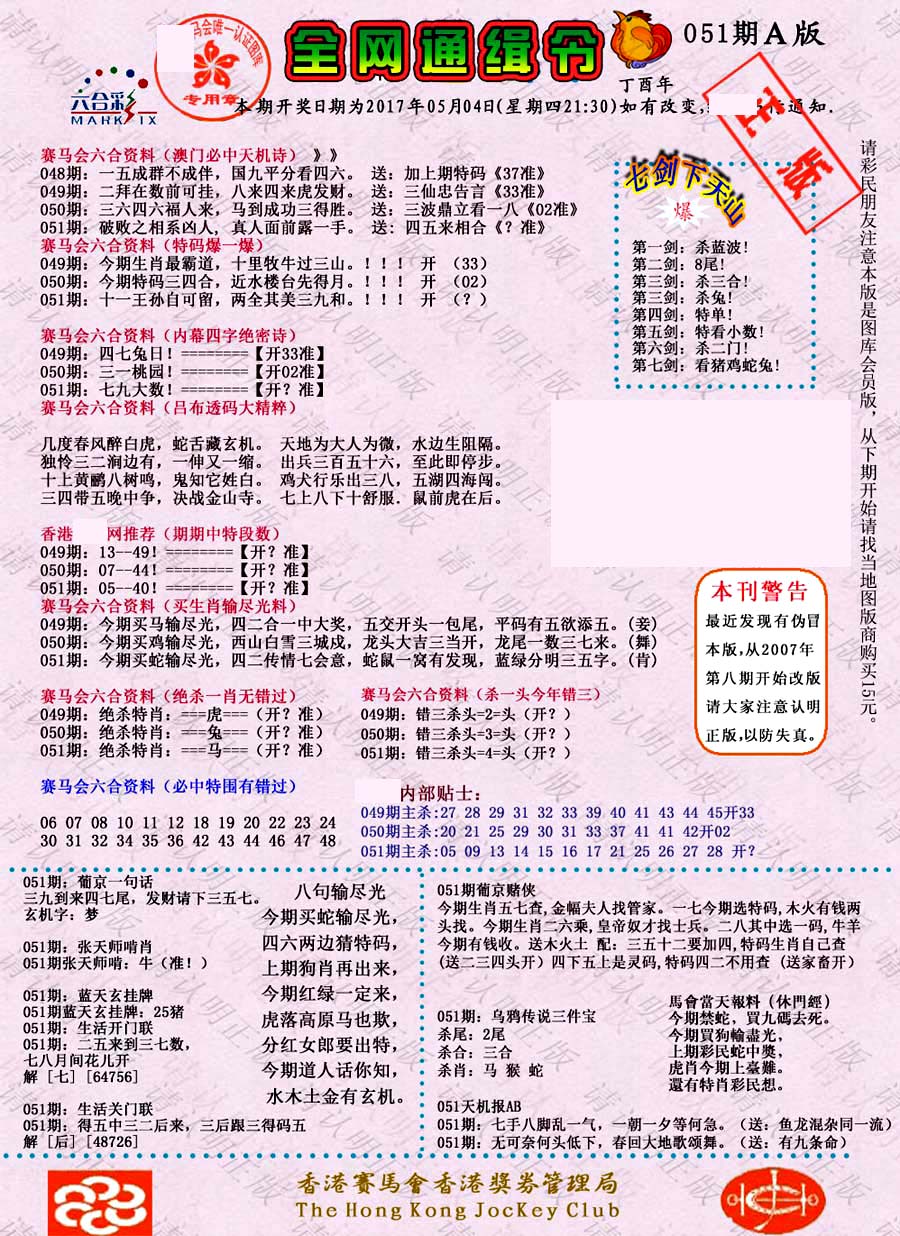 全网通缉令
051期A版
丁酉年
马会唯一认证图库
专用章
六合彩
MARK SIX
本期开奖日期为2017年05月04日(星期四21:30)如有改变,
通知.
正版
赛马会六合资料（澳门必中天机诗） 》》
048期：一五成群不成伴，国九平分看四六。 送：加上期特码《37准》
049期：二拜在数前可挂，八来四来虎发财。 送：三仙忠告言《33准》
050期：三六四六福人来，马到成功三得胜。 送：三波鼎立看一八《02准》
051期：破败之相系凶人, 真人面前露一手。 送: 四五来相合《？准》
赛马会六合资料（特码爆一爆）
049期：今期生肖最霸道，十里牧牛过三山。！！！ 开 （33）
050期：今期特码三四合，近水楼台先得月。！！！ 开 （02）
051期：十一王孙自可留，两全其美三九和。！！！ 开 （？）
赛马会六合资料（内幕四字绝密诗）
049期：四七兔日！========【开33准】
050期：三一桃园！========【开02准】
051期：七九大数！========【开？准】
赛马会六合资料（吕布透码大精粹）
几度春风醉白虎，蛇舌藏玄机。 天地为大人为微，水边生阻隔。
独怜三二涧边有，一伸又一缩。 出兵三百五十六，至此即停步。
十上黄鹂八树鸣，鬼知它姓白。 鸡犬行乐出三八，五湖四海闯。
三四带五晚中争，决战金山寺。 七上八下十舒服．鼠前虎在后。
七剑下天山
爆
第一剑：杀蓝波!
第二剑：8尾!
第三剑：杀三合!
第三剑：杀兔!
第四剑：特单!
第五剑：特看小数!
第六剑：杀二门!
第七剑：看猪鸡蛇兔!
请彩民朋友注意本版是图库会员版，从下期开始请找当地图版商购买15元。
香港
网推荐（期期中特段数）
049期：13--49！========【开？准】
050期：07--44！========【开？准】
051期：05--40！========【开？准】
赛马会六合资料（买生肖输尽光料）
049期：今期买马输尽光，四二合一中大奖，五交开头一包尾，平码有五欲添五。(妾)
050期：今期买鸡输尽光，西山白雪三城戍，龙头大吉三当开，龙尾一数三七来。(舞)
051期：今期买蛇输尽光，四二传情七会意，蛇鼠一窝有发现，蓝绿分明三五字。(肯)
本刊警告
最近发现有伪冒
本版,从2007年
第八期开始改版
请大家注意认明
正版,以防失真。
赛马会六合资料（绝杀一肖无错过）
049期：绝杀特肖：===虎===（开？准）
050期：绝杀特肖：===兔===（开？准）
051期：绝杀特肖：===马===（开？准）
赛马会六合资料（杀一头今年错三）
049期：错三杀头=2=头（开？）
050期：错三杀头=3=头（开？）
051期：错三杀头=4=头（开？）
赛马会六合资料（必中特围有错过）
06 07 08 10 11 12 18 19 20 22 23 24
30 31 32 34 35 36 42 43 44 46 47 48
内部贴士：
049期主杀:27 28 29 31 32 33 39 40 41 43 44 45开33
050期主杀:20 21 25 29 30 31 33 37 41 41 42开02
051期主杀:05 09 13 14 15 16 17 21 25 26 27 28 开？
051期：葡京一句话
三九到来四七尾，发财请下三五七。
玄机字：梦
051期：张天师啃肖
051期张天师啃：牛（准！）
051期：蓝天玄挂牌
051期蓝天玄挂牌：25猪
051期：生活开门联
051期：二五来到三七数，
七八月间花儿开
解 [七] [64756]
051期：生活关门联
051期：得五中三二后来，三后跟三得码五
解 [后] [48726]
八句输尽光
今期买蛇输尽光，
四六两边猜特码，
上期狗肖再出来，
今期红绿一定来，
虎落高原马也欺，
分红女郎要出特，
今期道人话你知，
水木土金有玄机。
051期葡京赌侠
今期生肖五七查,金幅夫人找管家。一七今期选特码,木火有钱两
头找。今期生肖二六乘,皇帝奴才找士兵。二八其中选一码,牛羊
今期有钱收。送木火土 配：三五十二要加四,特码生肖自己查
(送二三四头开）四下五上是灵码,特码四二不用查（送家畜开）
051期：乌鸦传说三件宝
杀尾：2尾
杀合：三合
杀肖：马 猴 蛇
馬會當天報料（休門經）
今期禁蛇，買九碼去死。
今期買狗輸盡光，
上期彩民蛇中獎，
虎肖今期上臺難。
還有特肖彩民想。
051天机报AB
051期：七手八脚乱一气，一朝一夕等何急。（送：鱼龙混杂同一流）
051期：无可奈何头低下，春回大地歌颂舞。（送：有九条命）
香港賽馬會香港獎券管理局
The Hong Kong JocKey Club